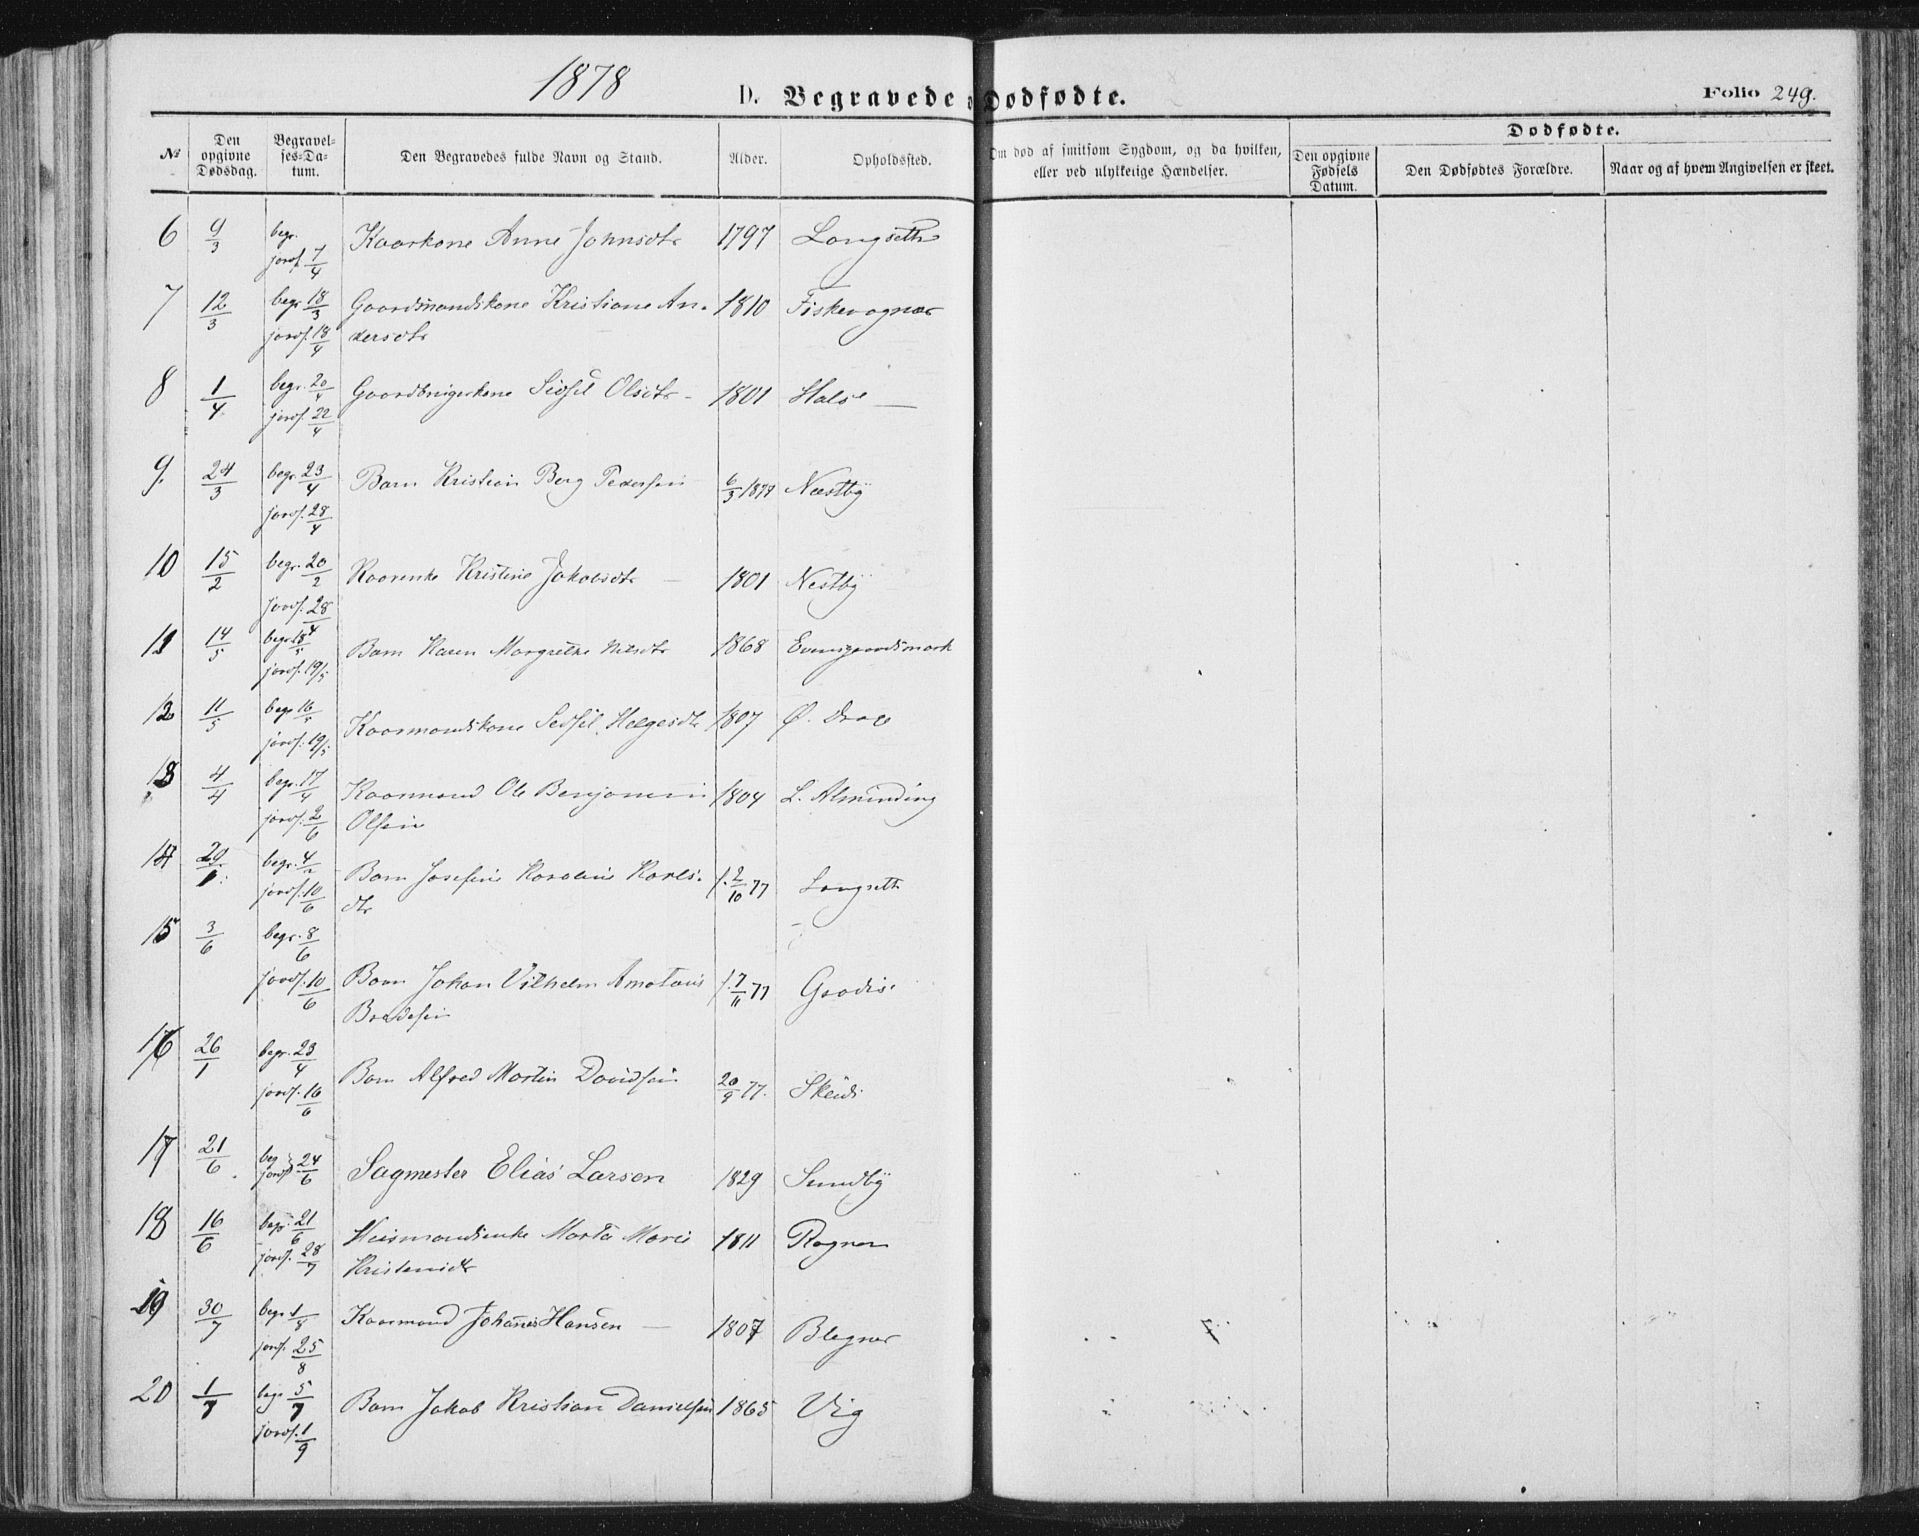 1878
D. Begravede o Dødfødte.
Folio 249.
№
Den opgivne Dødsdag.
Begravelses-Datum.
Den Begravedes fulde Navn og Stand.
Alder.
Opholdsted.
Om død af smitsom Sygdom, og da hvilken, eller ved ulykkelige Hændelser.
Dødfødte.
Den opgivne Fødsels Datum.
Den Dødfødtes Forældre.
Naar og af hvem Angivelsen er skeet.
6 9/3 begr. jordf. 7/4 Kaarkone Anne Johnsdtr 1797 Langseth
7 12/3 begr 18/3 Gaardmandskone Kristiane An- 1810 Fiskevagnæs
jordf. 18/4 dersdtr
8 1/4 begr. 20/4 jordf. 22/4 Gaardbrugerkone Sidsil Olsdtr - 1801 Halse —
9. 24/3 begr. 23/4 jordf. 28/4 Barn Kristian Berg Pedersen 6/3 1878 Næstby
10 15/2 begr. 20/2 jordf. 28/4 Kaarenke Kristine Jakobsdtr — 1801 Nestby
11 14/5 begr. 18/5 jordf. 19/5 Barn Karen Margrethe Nilsdtr 1868 Evensgaardsmark
12 11/5 begr 16/5 jordf. 19/5 Kaarmandskone Sidsil Helgesdtr 1807 Ø. Drage
13 4/4 begr. 17/4 Kaarmand Ole Benjamin 1804 L. Alminding
jordf. 2/6 Olsen
14 29/1. begr. 4/2 Barn Josefine Karoline Karls- f. 2/10 77 Langseth
jordf. 10/6 dtr
15 3/6 begr. 8/6
jordf. 10/6 Barn Johan Vilhelm Amataus f. 7/11 77 Graadis
Bredesen
16 26/1 begr. 23/4 jordf. 16/6 Barn Alfred Martin Davidsen 20/9 77. Skeidi
17 21/6 beg jordf. 24/6 Sagmester Elias Larsen 1829 Sundby
18 16/6 begr. 21/6 Huusmandsenke Marta Marie 1811 Rognan
jordf. 28/7 Kristensdtr
19 30/7 begr 1/8 jordf. 25/8 Kaarmand Johannes Hansen — 1807 Blegnæs
20 1/7 begr 5/7 jordf. 1/9 Barn Jakob Kristian Danielsen 1865 Vig